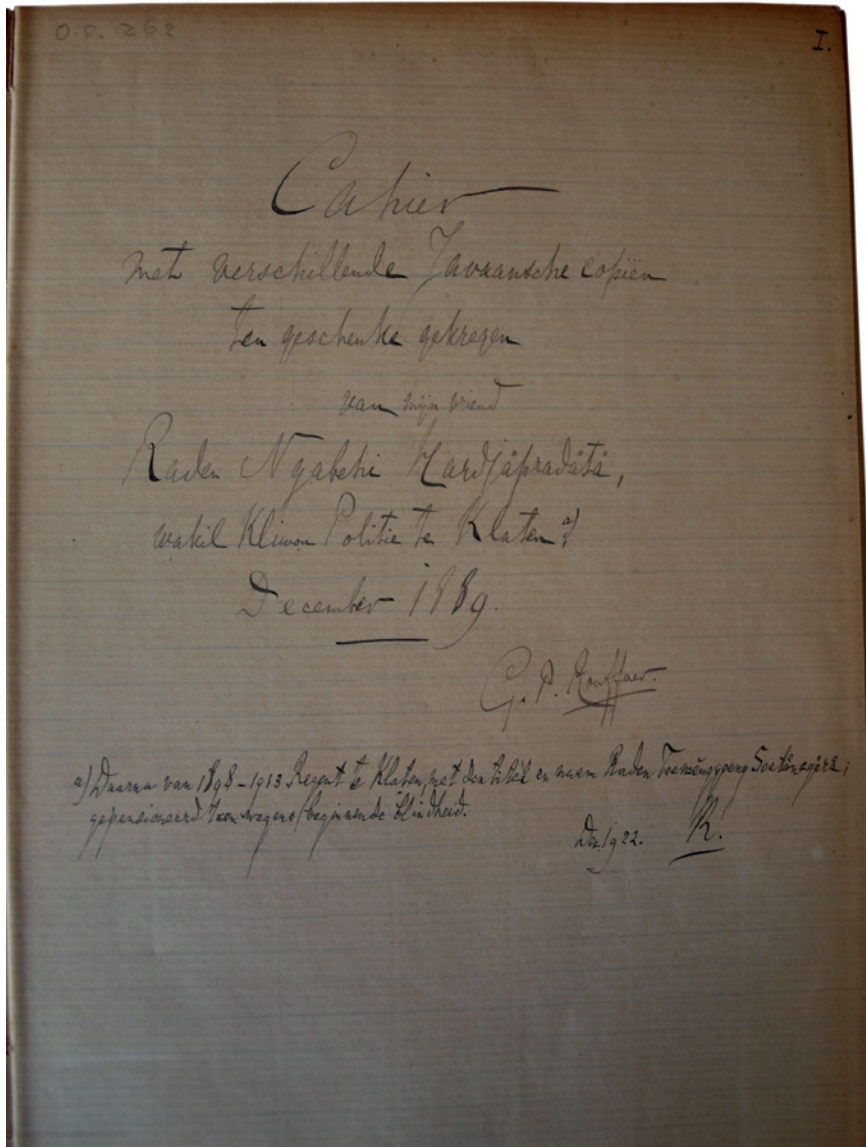 O.P. 262
I.
Cahier
met verschillende Javaansche copiën
ten geschenke gekregen
van mijn vriend
Raden Ngabehi Hardjåpradåtå,
wakil Kliwon Politie te Klaten a)
December 1889.
G. P. Rouffaer.
a) Daarna van 1898-1913 Regent te Klaten, met den titel en naam Raden Toemĕnggoeng Soetånegårå;
gepensioneerd toen wegens beginnende blindheid.
Dec. 1922. R.